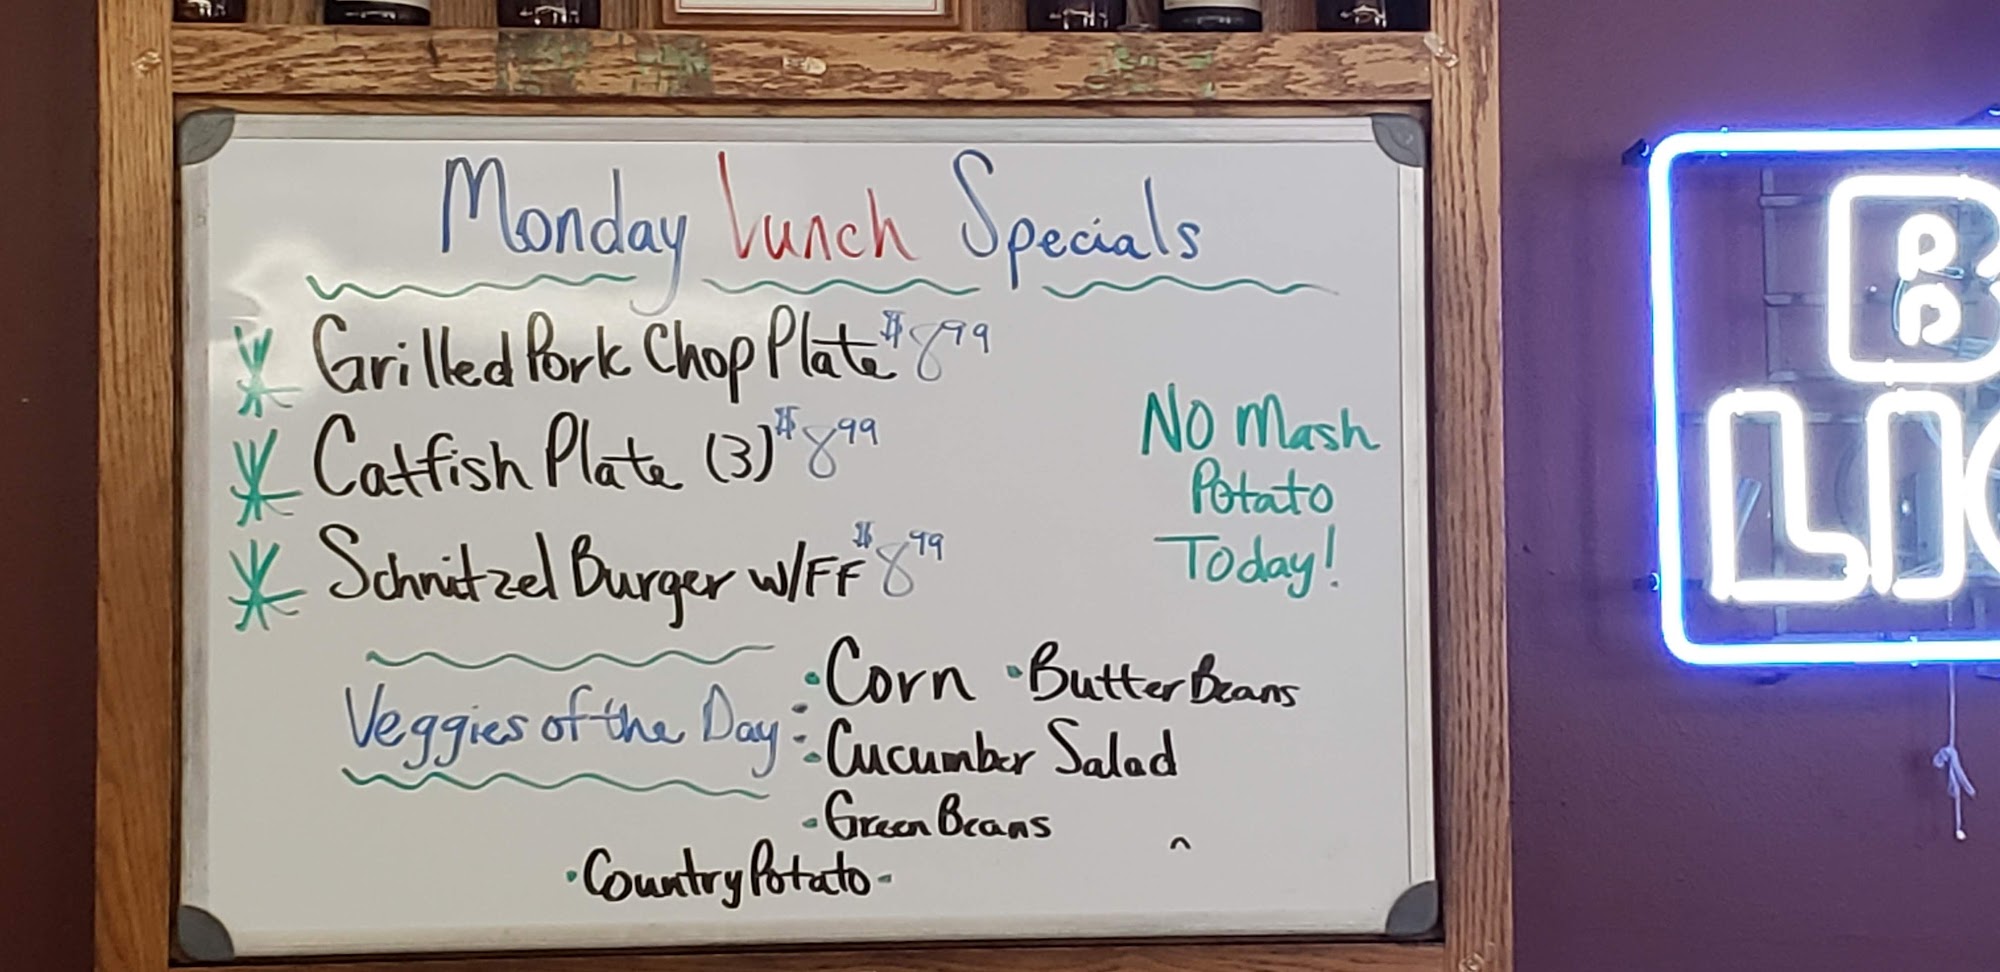 Monday Lunch Specials
Grilled Pork Chop Plate $8.99
Catfish Plate (3) $8.99
Schnitzel Burger w/FF $8.99
No Mash
Potato
Today!
Veggies of the Day:
· Corn · Butter Beans
· Cucumber Salad
· Green Beans
· Country Potato ·